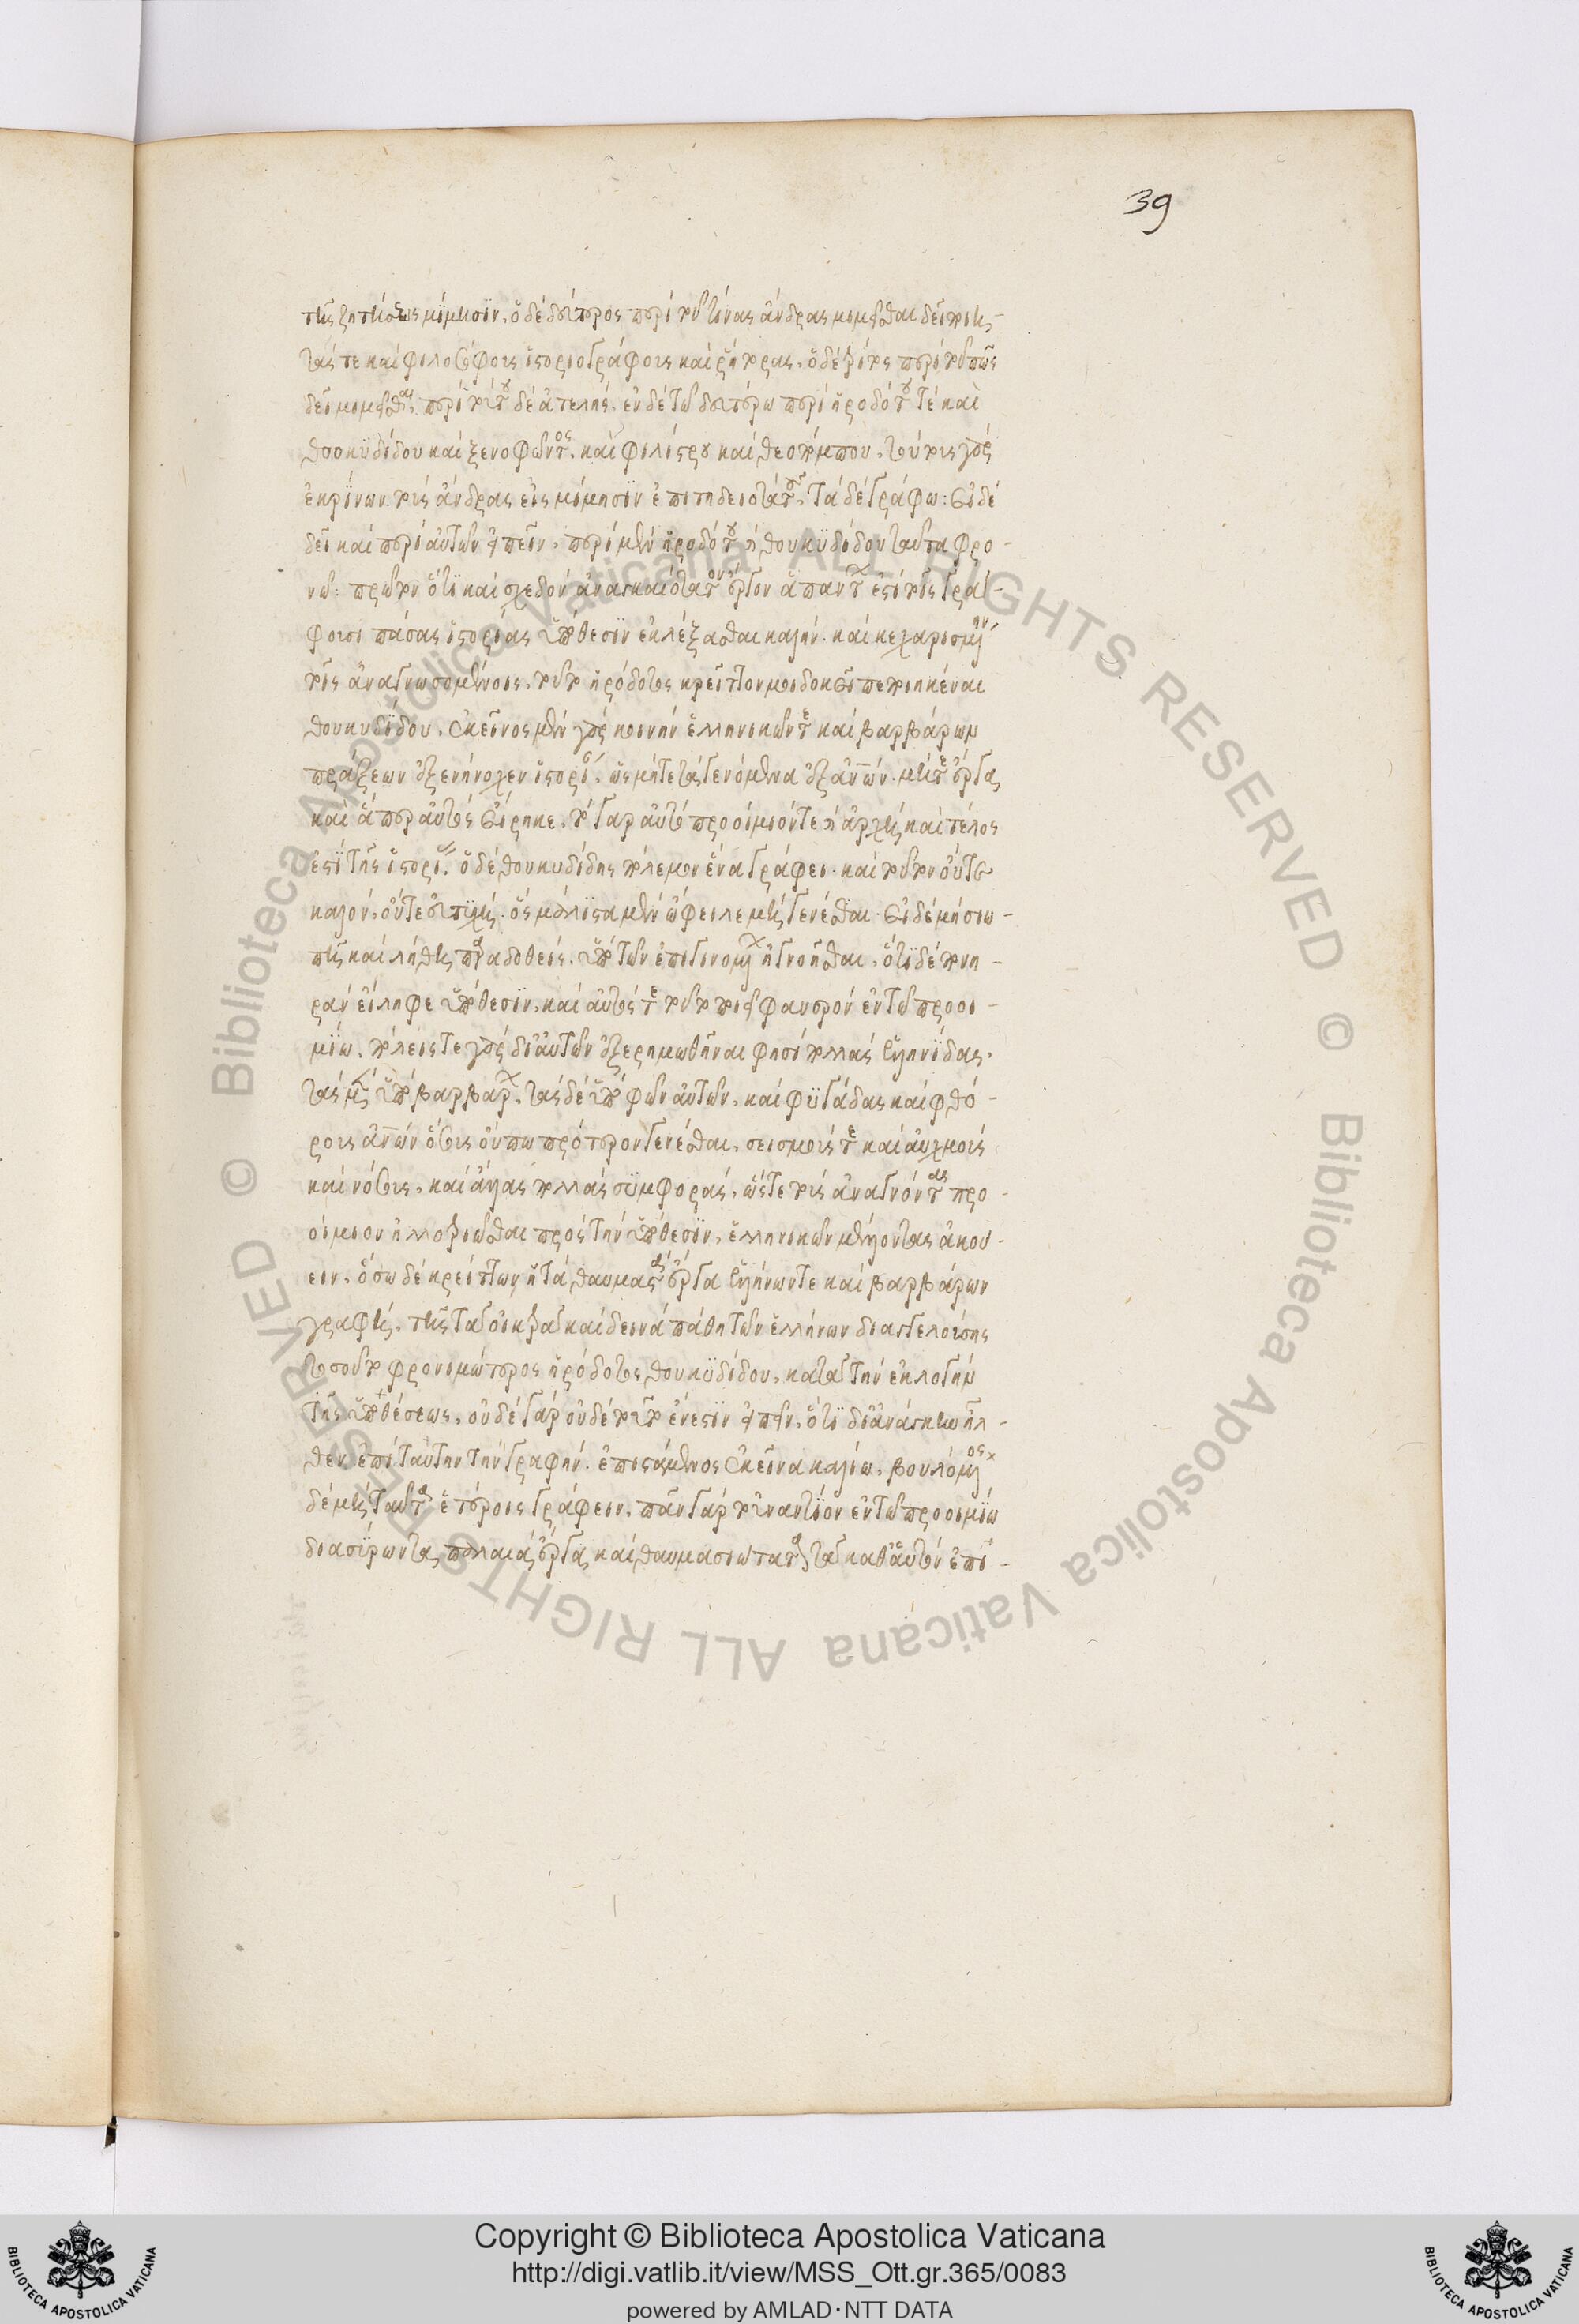 39
τῆς ζητήσεως μίμησιν. ὁ δὲ δεύτερος περὶ τοῦ τίνας ἄνδρας μιμεῖσθαι δεῖ ποιη-
τάς τε καὶ φιλοσόφους ἱστοριογράφους καὶ ῥήτορας. ὁ δὲ τρίτος περὶ τοῦ πῶς
δεῖ μιμεῖσθαι. περὶ τούτου δὲ ἀτελής. ἐν δὲ τῷ δευτέρῳ περὶ ἡροδότου τέ καὶ
θουκυδίδου καὶ ξενοφῶντος. καὶ φιλίστου καὶ θεοπόμπου. τούτους γὰρ
ἐκρίνων τοὺς ἄνδρας εἰς μίμησιν ἐπιτηδειοτάτους. τάδε γράφω: εἰ δὲ
δεῖ καὶ περὶ αὐτῶν εἰπεῖν. περὶ μὲν ἡροδότου καὶ θουκυδίδου ταῦτα φρο-
νῶ: πρῶτον ὅτι καὶ σχεδὸν ἀναγκαιότατον ἔργον ἁπάντων ἐστὶ τοῖς γρά-
φουσι πάσας ἱστορίας ὑπόθεσιν ἐκλέξασθαι καλήν. καὶ κεχαρισμένην
τοῖς ἀναγνωσομένοις. τοῦτο ἡρόδοτος κρεῖττον μοι δοκεῖ πεποιηκέναι
θουκυδίδου. ἐκεῖνος μὲν γὰρ κοινὴν ἑλληνικῶν τε καὶ βαρβάρων
πράξεων ἐξενήνοχεν ἱστορίαν. ὡς μήτε τὰ γενόμενα ἐξ ἀνθρώπων. μήτε ἔργα
καὶ ἅπερ αὐτὸς εἴρηκε. τὸ γὰρ αὐτὸ προοίμιόν τε καὶ ἀρχὴ καὶ τέλος
ἐστὶ τῆς ἱστορίας. ὁ δὲ θουκυδίδης πόλεμον ἕνα γράφει. καὶ τοῦτον οὔτε
καλόν. οὔτε εὐτυχῆ. ὃς μάλιστα μὲν ὤφειλε μὴ γενέσθαι. εἰ δὲ μὴ σιω-
πῇ καὶ λήθῃ παραδοθεὶς. ὑπὸ τῶν ἐπιγινομένων ἠγνοῆσθαι. ὅτι δὲ πονη-
ρὰν εἴληφε ὑπόθεσιν. καὶ αὐτός τε τοῦτο ποιεῖ φανερὸν ἐν τῷ προοι-
μίῳ. πόλεις τε γὰρ δι' αὐτῶν ἐξερημωθῆναι φησὶ πολλὰς ἑλληνίδας.
τὰς μὲν ὑπὸ βαρβάρων. τὰς δὲ ὑπὸ σφῶν αὐτῶν. καὶ φυγάδας καὶ φθό-
ρους ἀνθρώπων ὅσους οὔπω πρότερον γενέσθαι. σεισμούς τε καὶ αὐχμοὺς
καὶ νόσους. καὶ ἄλλας πολλὰς συμφοράς. ὥστε τοὺς ἀναγνόντας προ-
οίμιον ἠλλοτριῶσθαι πρὸς τὴν ὑπόθεσιν. ἑλληνικῶν μέλλοντας ἀκού-
ειν. ὅσῳ δὲ κρείττων ἡ τὰ θαυμαστὰ ἔργα ἑλλήνων τε καὶ βαρβάρων
γραφή. τῆς τὰ οἰκτρὰ καὶ δεινὰ πάθη τῶν ἑλλήνων διαγγελούσης
τοσούτῳ φρονιμώτερος ἡρόδοτος θουκυδίδου. κατὰ τὴν ἐκλογὴν
τῆς ὑποθέσεως. οὐδὲ γὰρ οὐδὲ τοῦτο ἔνεστιν εἰπεῖν. ὅτι δι' ἀνάγκην ἦλ-
θεν ἐπὶ ταύτην τὴν γραφήν. ἐπιστάμενος ἐκεῖνα καλλίω. βουλόμενος
δὲ μὴ ταὐτὰ ἑτέροις γράφειν. πᾶν γὰρ τοὐναντίον ἐν τῷ προοιμίῳ
διασύρων τὰ παλαιὰ ἔργα καὶ θαυμασιώτατα τὰ καθ' αὑτὸν ἐπι-
© Biblioteca Apostolica Vaticana ALL RIGHTS RESERVED © Biblioteca Apostolica Vaticana ALL RIGHTS RESERVED
Copyright © Biblioteca Apostolica Vaticana
http://digi.vatlib.it/view/MSS_Ott.gr.365/0083
powered by AMLAD·NTT DATA
BIBLIOTECA APOSTOLICA VATICANA
BIBLIOTECA APOSTOLICA VATICANA